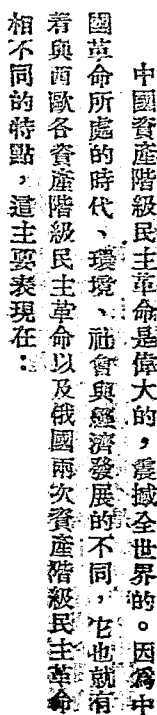 中國資產階級民主革命是偉大的，震撼全世界的。因爲中
國革命所處的時代、環境、社會與經濟發展的不同，它也就有
着與西歐各資產階級民主革命以及俄國兩次資產階級民主革命
相不同的特點，這主要表現在：